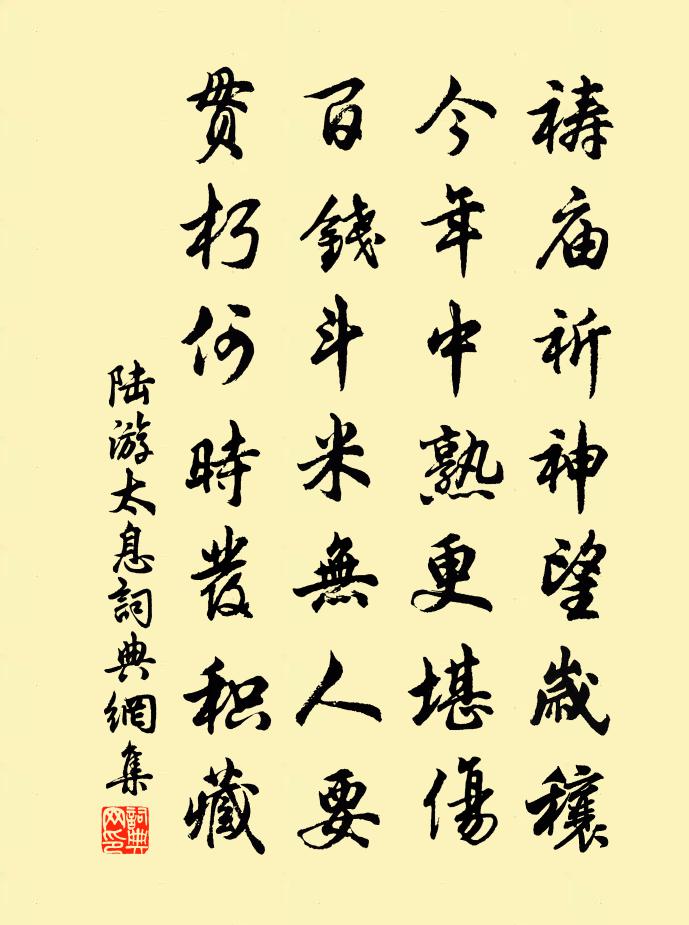 祷庙祈神望歳穰
今年中熟更堪傷
百錢斗米無人要
贯朽何時發积藏
陆游太息詞典網集
詞典网印